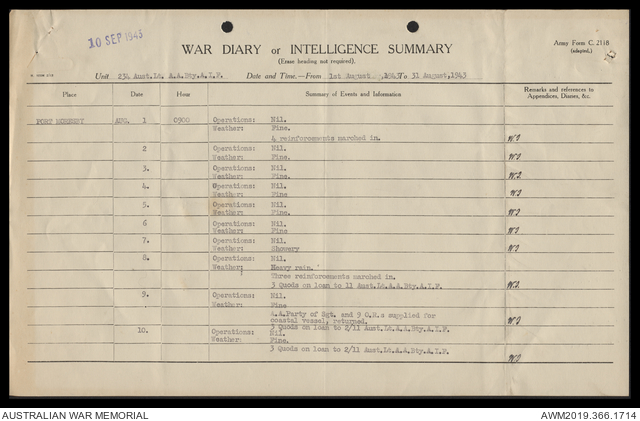 10 SEP 1943
WAR DIARY or INTELLIGENCE SUMMARY
(Erase heading not required).
Army Form C. 2118
(adapted.)
Unit 234 Aust.Lt. A.A.Bty.A.I.F. Date and Time.—From 1st August ,1943 To 31 August,1943
Place Date Hour Summary of Events and Information Remarks and references to Appendices, Diaries, &c.
PORT MORESBY AUG. 1 0900 Operations: Nil.
Weather: Fine.
4 reinforcements marched in.
2 Operations: Nil.
Weather: Fine.
3. Operations: Nil.
Weather: Fine.
4. Operations: Nil.
Weather: Fine
5. Operations: Nil.
Weather: Fine.
6 Operations: Nil.
Weather: Fine
7. Operations: Nil.
Weather: Showery
8. Operations: Nil.
Weather: Heavy rain.
Three reinforcements marched in.
3 Quods on loan to 11 Aust.Lt.A.A.Bty.A.I.F.
9. Operations: Nil.
Weather: Fine
A.A.Party of Sgt. and 9 O.R.s supplied for
coastal vessel, returned.
3 Quods on loan to 2/11 Aust.Lt.A.A.Bty.A.I.F.
10. Operations: Nil.
Weather: Fine.
3 Quods on loan to 2/11 Aust.Lt.A.A.Bty.A.I.F.
AUSTRALIAN WAR MEMORIAL AWM2019.366.1714